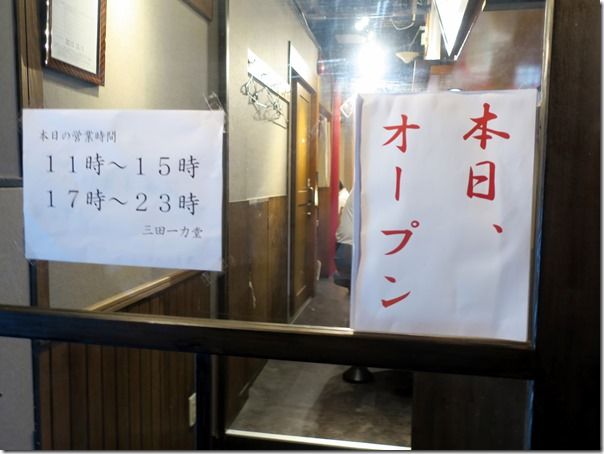 本日の営業時間
11時~15時
17時~23時
三田一力堂
本日、
オープン